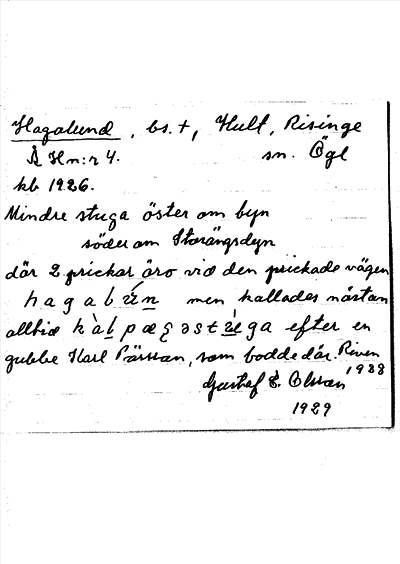 Hagalund, bs. †, Hult, Risinge
Å Hn:r 4. sn. Ögl
kb 1926.
Mindre stuga öster om byn
söder om Storängsdyn
där 2 prickar äro vid den prickade vägen
hagal men kallades nästan
alltid efter en
gubbe Karl Pärssan, som bodde där. Riven
1928
Gustaf E. Olsson
1929